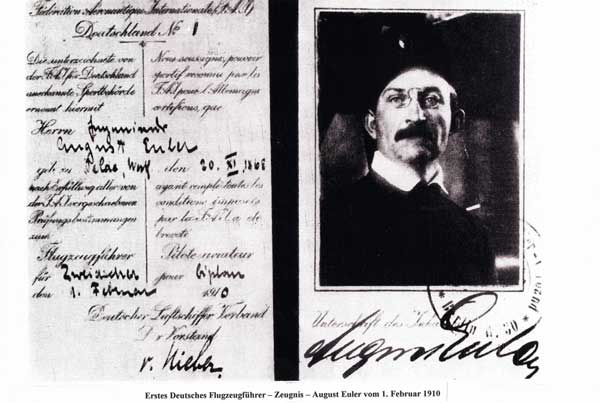 Fédération Aéronautique Internationale (F.A.I.)
Deutschland No 1
Die unterzeichnete von
der F.A.I. für Deutschland
anerkannte Sportbehörde
ernennt hiermit
Nous soussignés, pouvoir
sportif reconnu par la
F.A.I. pour l'Allemagne
certifions, que
Herrn Ingenieur
August Euler
geb. zu Oelde, Westf. den 20. XI. 1868
nach Erfüllung aller von
der F.A.I. vorgeschriebenen
Prüfungsbestimmungen
zum
ayant rempli toutes les
conditions imposées
par la F.A.I. a été
breveté
Flugzeugführer
Pilote aviateur
für Zweidecker
pour biplan
den 1. Februar 1910
Deutscher Luftschiffer Verband
Der Vorstand
v. Nieber
Unterschrift des Inhabers
August Euler
Erstes Deutsches Flugzeugführer – Zeugnis – August Euler vom 1. Februar 1910